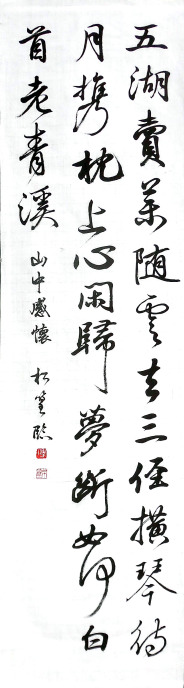 五湖賣藥随雲去三徑橫琴待
月携枕上心閑歸夢斷如何白
首老青溪
山中感懷 松篁臨